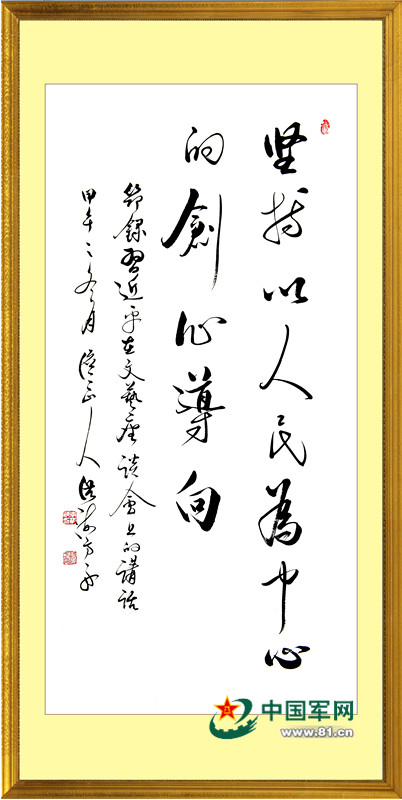 坚持以人民為中心
的創作導向
節錄習近平在文藝座談會上的講話
甲午之冬月
中国军网
www.81.cn